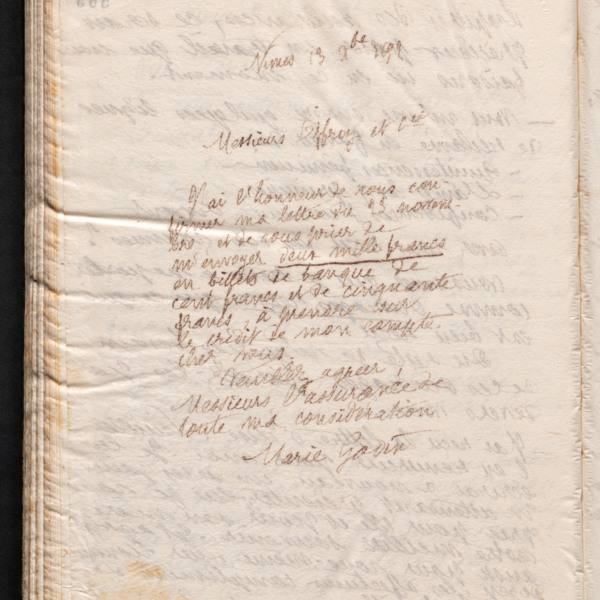 Nimes 13 Xbre 189
Messieurs et Cie
J'ai l'honneur de vous con
firmer ma lettre du 23 novem-
bre et de vous prier de
m'envoyer deux mille francs
en billets de banque de
cent francs et de cinquante
francs, à prendre sur
le crédit de mon compte
chez vous.
Veuillez agréer,
Messieurs l'assurance de
toute ma considération
Marie Godin